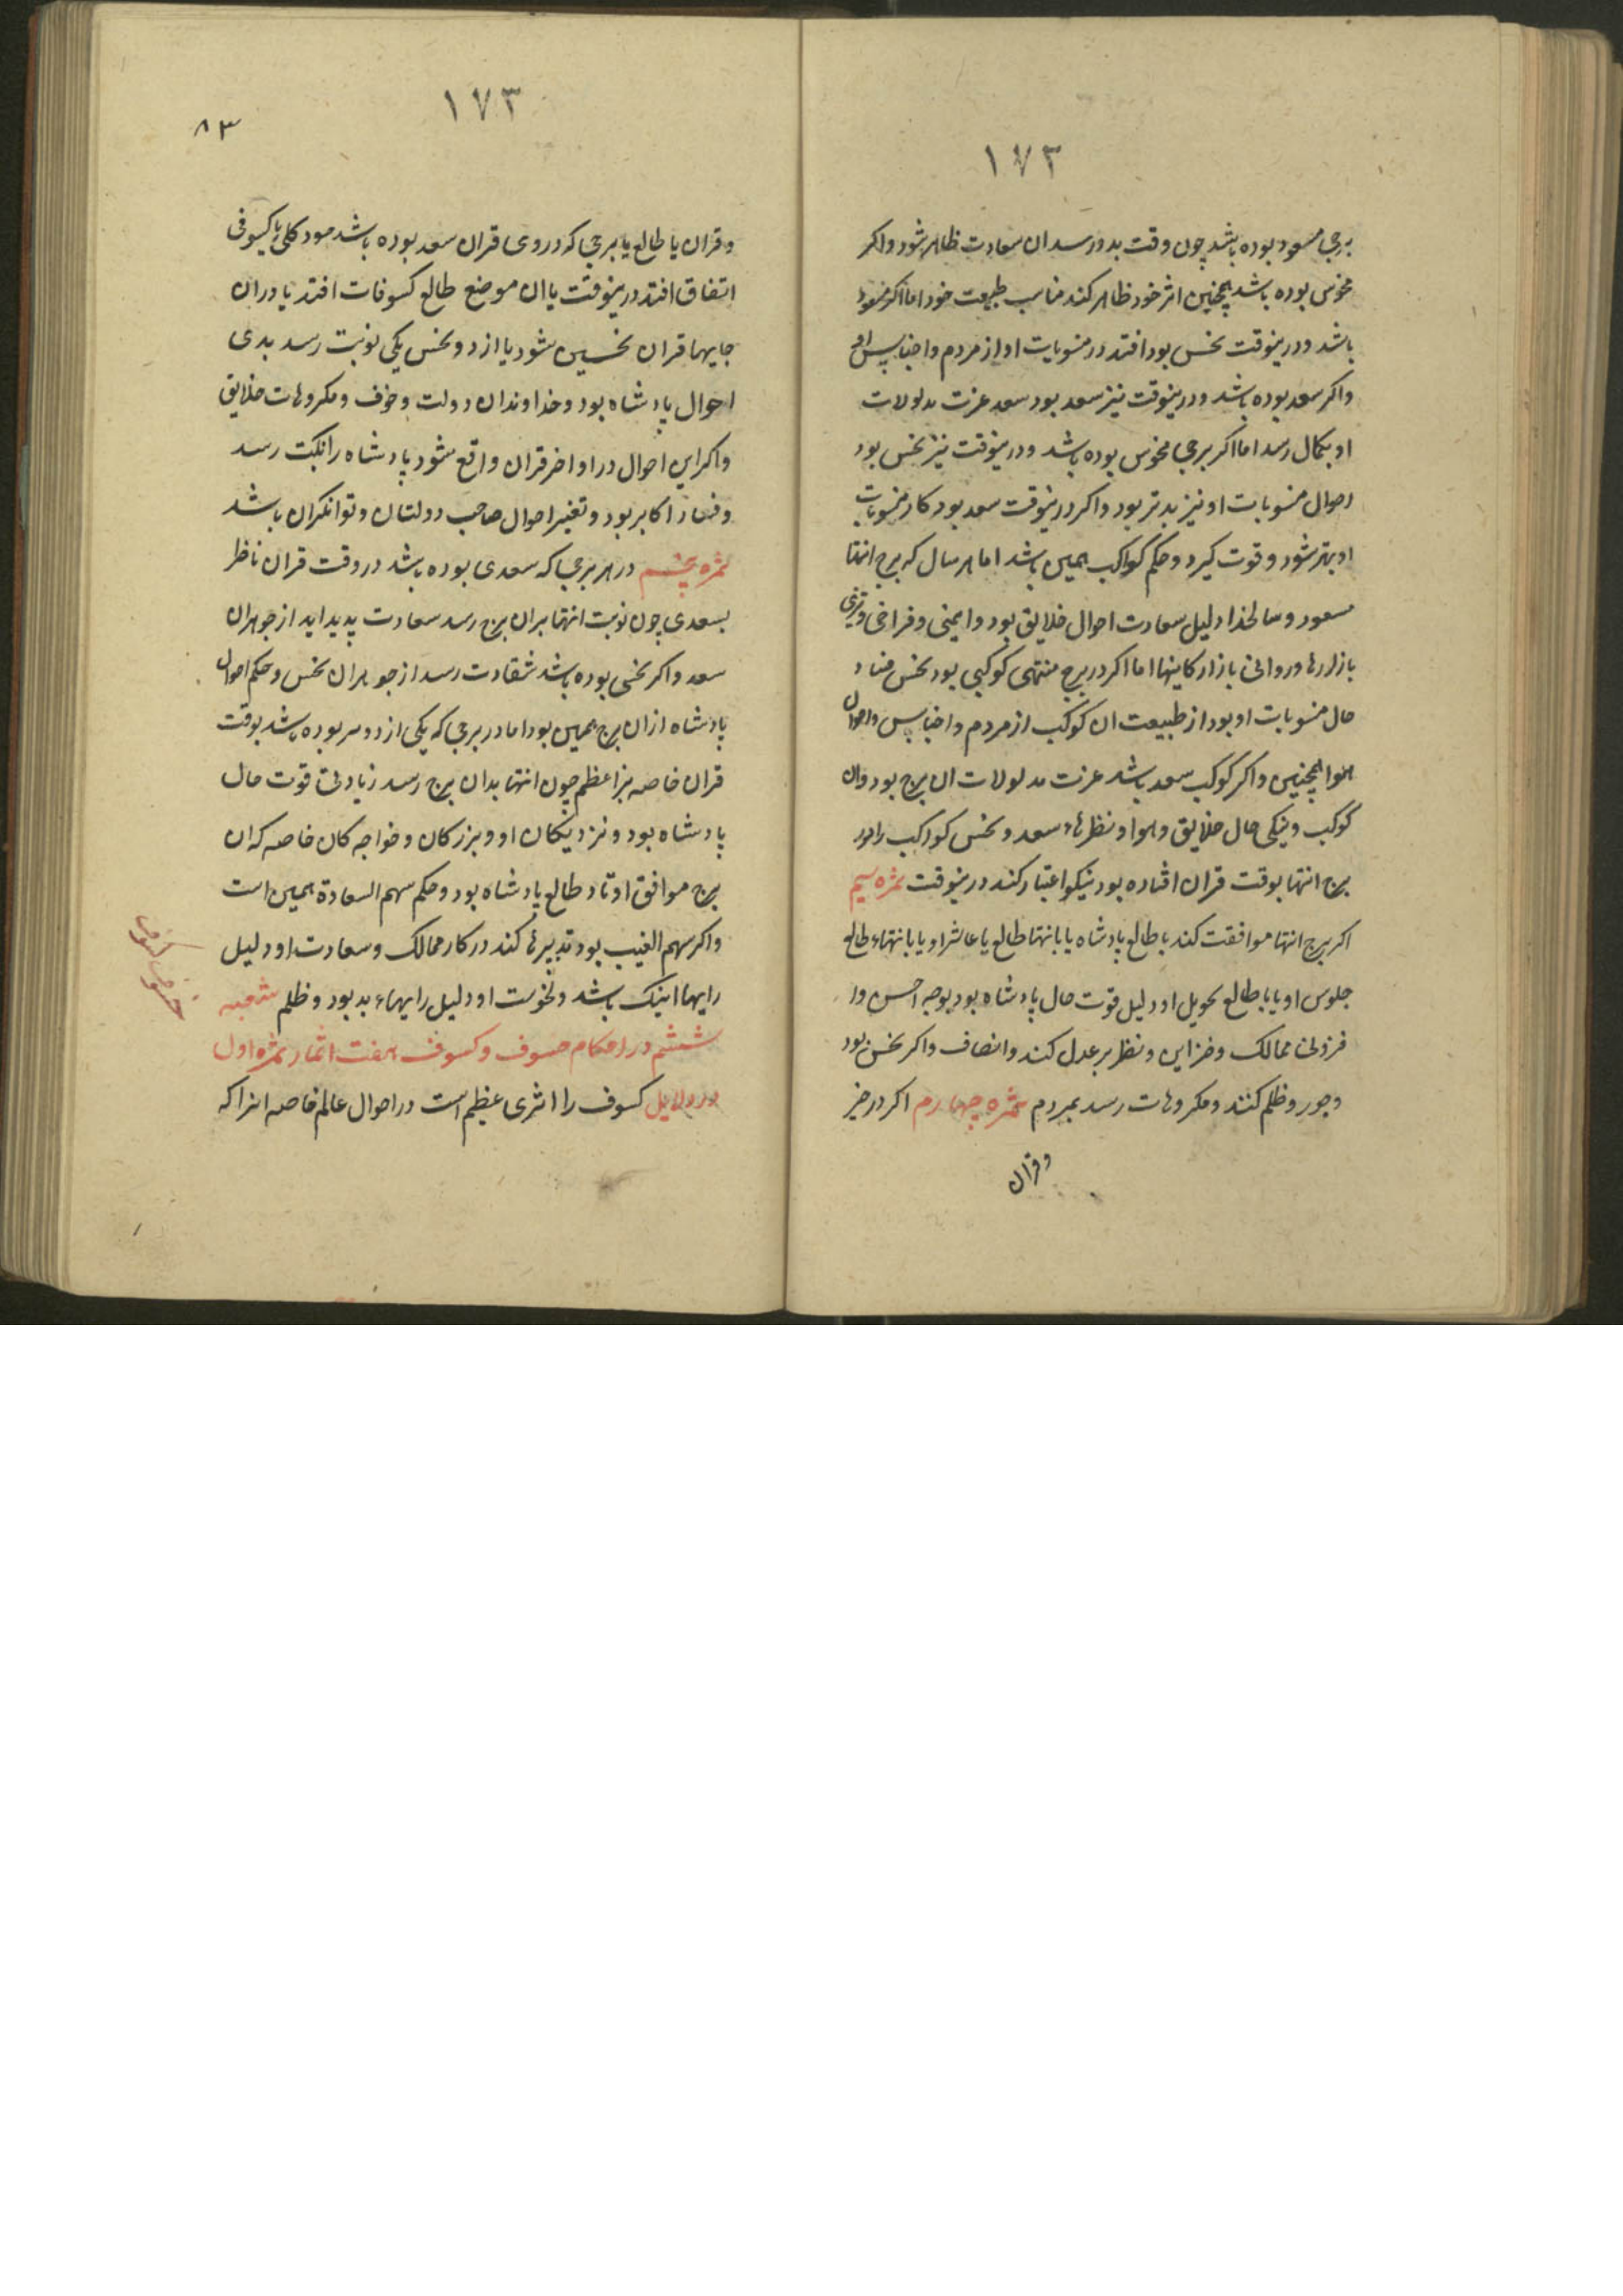 ١٧٢
برجی مسعود بوده باشد چون وقت بدو رسد ان سعادت ظاهر شود واکر
منحوس بوده باشد همچنین اثر خود ظاهر کند مناسب طبیعت خود اما اکر مسعود
باشد ودرینوقت نحس بود افتد در منسوبات او از مردم واجناس او
واکر سعد بوده باشد ودرینوقت نیز سعد بود سعد عزت مدلولات
او بکمال رسد اما اکر برجی منحوس بوده باشد ودرینوقت نیز نحس بود
احوال منسوبات او نیز بدتر بود واکر درینوقت سعد بود کار منسوبات
او بهتر شود وقوت کیرد وحکم کواکب همین باشد اما هر سال که برج انتها
مسعود وسالخدا دلیل سعادت احوال خلایق بود وایمنی وفراخی وتیزی
بازارها وروائی بازارکانیها اما اکر در برج منتهی کوکبی بود نحس فساد
حال منسوبات او بود از طبیعت ان کوکب از مردم واجناس واحوال
هوا همچنین واکر کوکب سعد باشد عزت مدلولات ان برج بود وان
کوکب ونیکی حال خلایق وهوا ونظرهاء سعد ونحس کواکب را در
برج انتها بوقت قران افتاده بود نیکو اعتبار کند درینوقت ثمره سیم
اکر برج انتها موافقت کند با طالع پادشاه یا بانتها طالع یا عاشر او یا بانتهاء طالع
جلوس او یا با طالع تحویل او دلیل قوت حال پادشاه بود بوجه احسن ودر
فزونی ممالک وخزاین ونظر بر عدل کند وانصاف واکر نحس بود
وجور وظلم کنند ومکروهات رسد بمردم ثمره چهارم اکر در جز
وقران
١٧٣
٨٣
وقران یا طالع یا برجی که در وی قران سعد بوده باشد سود کلی یا کسوفی
اتفاق افتد درینوقت یا ان موضع طالع کسوفات افتد یا دران
جایها قران نحسین شود یا از دو نحس یکی نوبت رسد بدی
احوال پادشاه بود وخداوندان دولت وخوف ومکروهات خلایق
واکر این احوال در اواخر قران واقع شود پادشاه را نکبت رسد
وفساد اکابر بود وتغییر احوال صاحب دولتان وتوانکران باشد
ثمره پنجم در هر برجی که سعدی بوده باشد در وقت قران ناظر
بسعدی چون نوبت انتها بران برج رسد سعادت پدید اید از جوهران
سعد واکر نحسی بوده باشد شقاوت رسد از جوهران نحس وحکم احوال
پادشاه ازان برج همین بود اما در برجی که یکی از دو سر بوده باشد بوقت
قران خاصه نیر اعظم چون انتها بدان برج رسد زیادتی قوت حال
پادشاه بود ونزدیکان او وبزرکان وخواجه کان خاصه که ان
برج موافق اوتاد طالع پادشاه بود وحکم سهم السعادة همین است
واکر سهم الغیب بود تدبیرها کند در کار ممالک وسعادت او دلیل
رایها نیک باشد ونحوست او دلیل رایهاء بد بود وظلم شعبه
ششم در احکام خسوف وکسوف هفت اثمار ثمره اول
در دلایل کسوف را اثری عظیم است در احوال عالم خاصه انرا که
خسوف کسوف